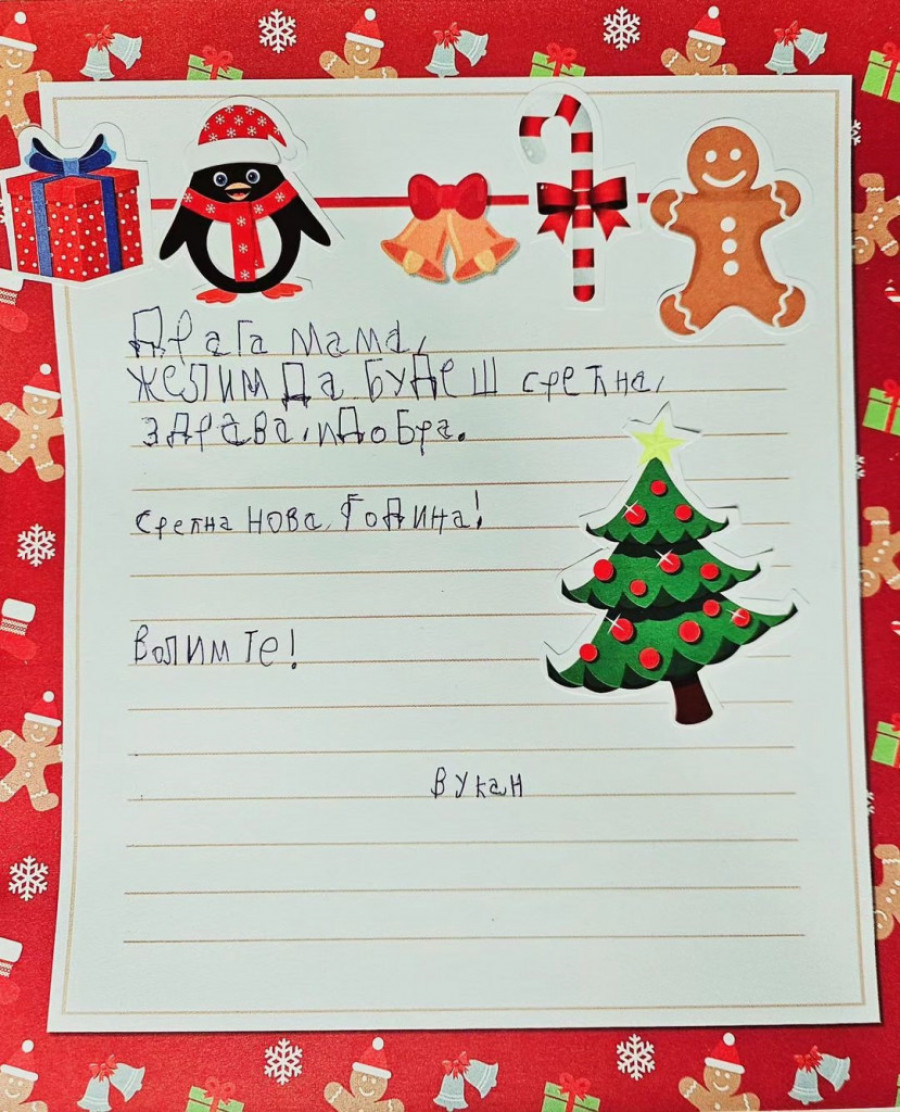 Драга мама,
желим да будеш срећна,
здрава, и добра.
Срећна нова година!
Волим те!
Вукан